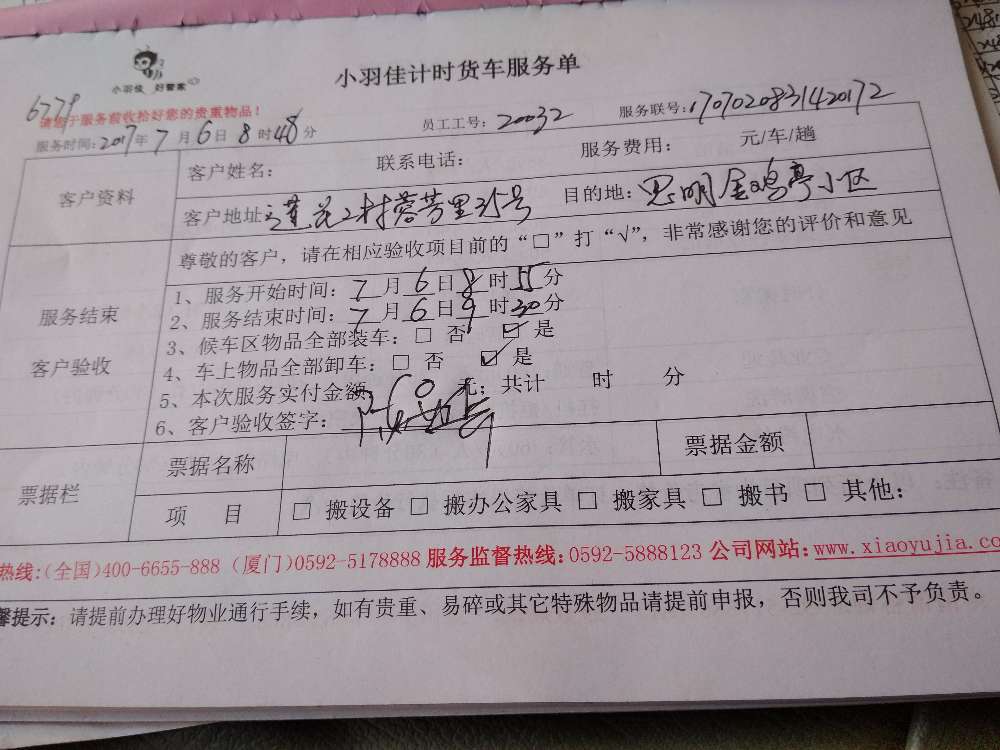 小羽佳 好管家
小羽佳计时货车服务单
6779
请您于服务前收拾好您的贵重物品!
服务时间:2017年7月6日8时48分 员工工号:20032 服务联号:170702083142017​2
客户资料
客户姓名: 联系电话: 服务费用: 元/车/趟
客户地址:莲花二村蓉芳里35号 目的地:思明金鸡亭小区
服务结束
客户验收
尊敬的客户,请在相应验收项目前的“□”打“√”,非常感谢您的评价和意见
1、服务开始时间:7月6日8时55分
2、服务结束时间:7月6日9时30分
3、候车区物品全部装车:□ 否 ☑ 是
4、车上物品全部卸车:□ 否 ☑ 是
5、本次服务实付金额 60 元;共计 时 分
6、客户验收签字:
票据栏
票据名称 票据金额
项 目 □ 搬设备 □ 搬办公家具 □ 搬家具 □ 搬书 □ 其他:
热线:(全国)400-6655-888 (厦门)0592-5178888 服务监督热线:0592-5888123 公司网站:www.xiaoyujia.co
馨提示:请提前办理好物业通行手续,如有贵重、易碎或其它特殊物品请提前申报,否则我司不予负责。